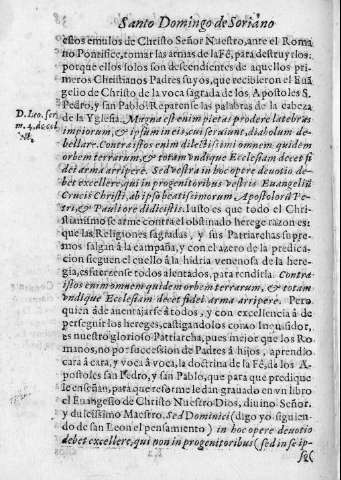 Santo Domingo de Soriano
estos emulos de Christo Señor Nuestro, ante el Roma
no Pontifice, tomar las armas de la Fé, para destruyrlos:
porque ellos solos son descendientes de aquellos pri-
meros Christianos Padres suyos, que recibieron el Euã
gelio de Christo de la voca sagrada de los Apostoles S.
Pedro, y san Pablo. Reparense las palabras de la cabeza
D. Leo. ser.
de la Yglesia. Magna est enim pietas prodere latebras
impiorum, & ipsum in eis, cui seruiunt, diabolum de-
bellare. Contra istos enim dilectissimi omnem quidem
orbem terrarum, & totam vndique Ecclesiam decet fi
dei arma arripere. Sed vestra in hoc opere deuotio de-
bet excellere, qui in progenitoribus vestris Euangeliũ
Crucis Christi, ab ipso beatissimorum Apostolorũ Pe-
tri, & Pauli ore didicistis. Iusto es que todo el Chri-
stianismo se arme contra el obstinado herege razon es
que las Religiones sagradas, y sus Patriarchas supre-
mos salgan à la campaña, y con el azero de la predica-
cion sieguen el cuello à la hidria venenosa de la here-
gia, esfuerense todos alentados, para rendirla. Contra
istos enim omnem quidem orbem terrarum, & totam
vndique Ecclesiam decet fidei arma arripere. Pero
quien à de auentajarse à todos, y con excellencia à de
perseguir los hereges, castigandolos como Inquisidor,
es nuestro glorioso Patriarcha, pues mejor que los Ro-
manos, no por succession de Padres à hijos, aprendio
cara à cara, y voca à voca, la doctrina de la Fé, de los A-
postoles san Pedro, y san Pablo, que para que predique
le enseñan, para que reforme le dan grauado en vn libro
el Euangelio de Christo Nuestro Dios, diuino Señor,
y dulcissimo Maestro. Sed Dominici (digo yo siguien-
do de san Leon el pensamiento) in hoc opere deuotio
debet excellere, qui non in progenitoribus (sed in se ip-